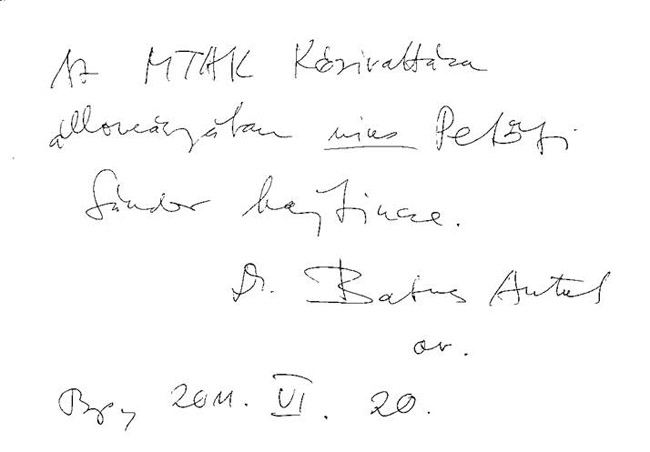 Az MTAK Kézirattára
állományában nincs Petőfi
Sándor hajtincse.
Dr. Babus Antal
ov.
Bp, 2011. VI. 20.